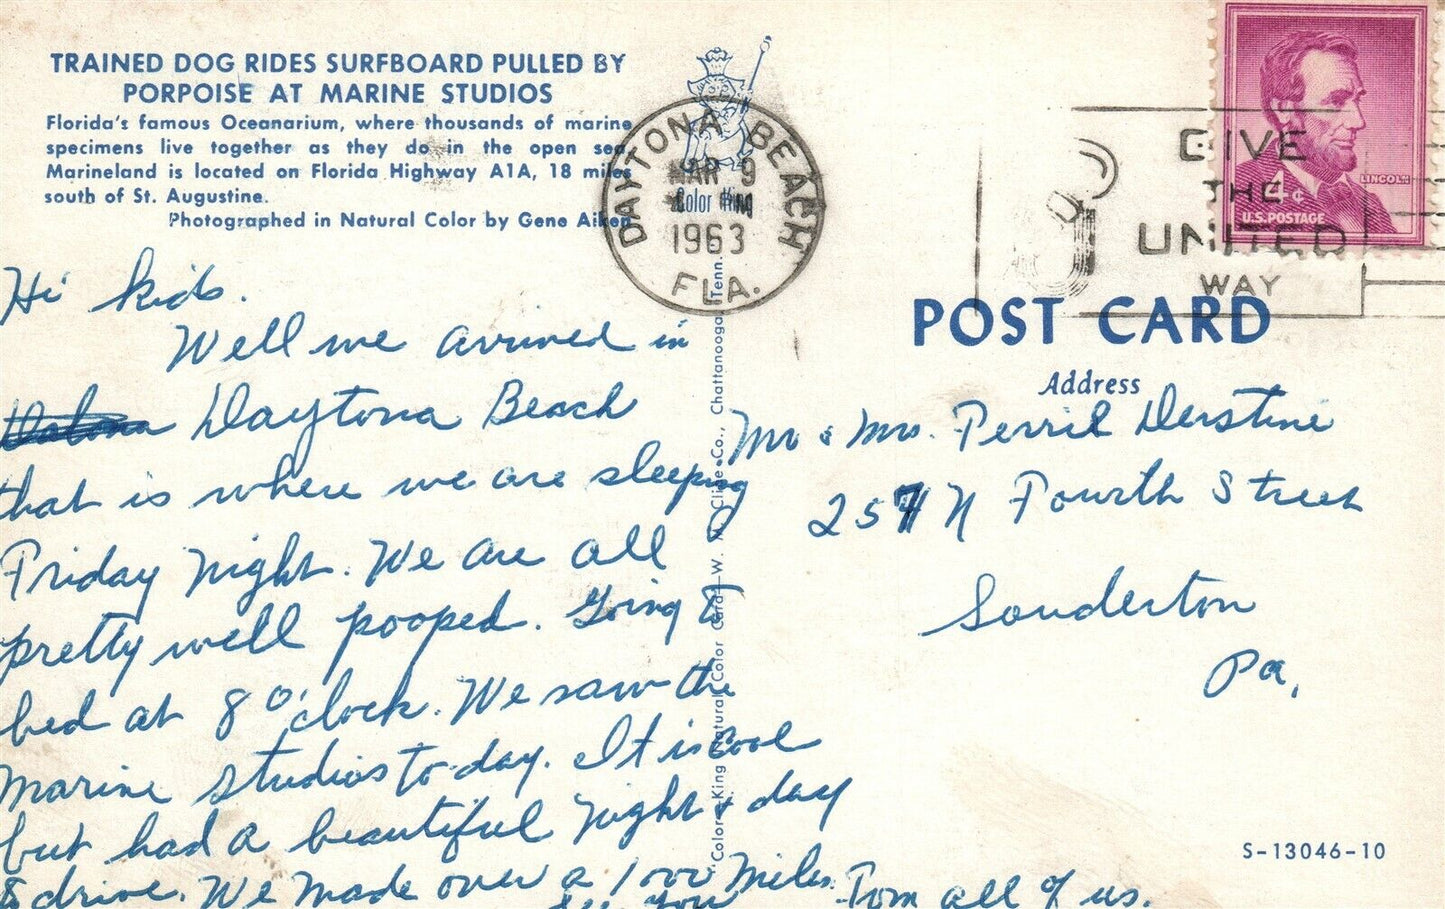 TRAINED DOG RIDES SURFBOARD PULLED BY
PORPOISE AT MARINE STUDIOS
Florida's famous Oceanarium, where thousands of marine
specimens live together as they do in the open sea.
Marineland is located on Florida Highway A1A, 18 miles
south of St. Augustine.
Photographed in Natural Color by Gene Aiken
Hi kids.
Well we arrived in
Daytona Beach
that is where we are sleeping
Friday night. We are all
pretty well pooped. Going to
bed at 8 o'clock. We saw the
Marine studios to-day. It is cool
but had a beautiful night & day
to drive. We made over a 1000 miles.
See you
Tom all of us.
DAYTONA BEACH
MAR 9
1963
FLA.
Color King
Color King Natural Color Card—W. M. Cline Co., Chattanooga, Tenn.
GIVE
THE
UNITED
WAY
LINCOLN
4¢
U.S. POSTAGE
POST CARD
Address
Mr & Mrs. Perril Derstine
257 N Fourth Street
Souderton
Pa.
S-13046-10